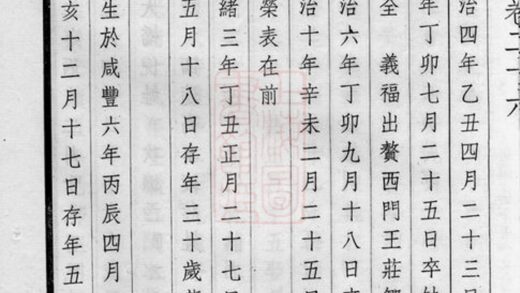 卷二十六
治四年乙丑四月二十三
年丁卯七月二十五日卒
全　義福出贅西門王莊
治六年丁卯九月十八日
治十年辛未二月二十五
榮表在前
緒三年丁丑正月二十七
五月十八日存年三十歲
生於咸豐六年丙辰四月
亥十二月十七日存年五